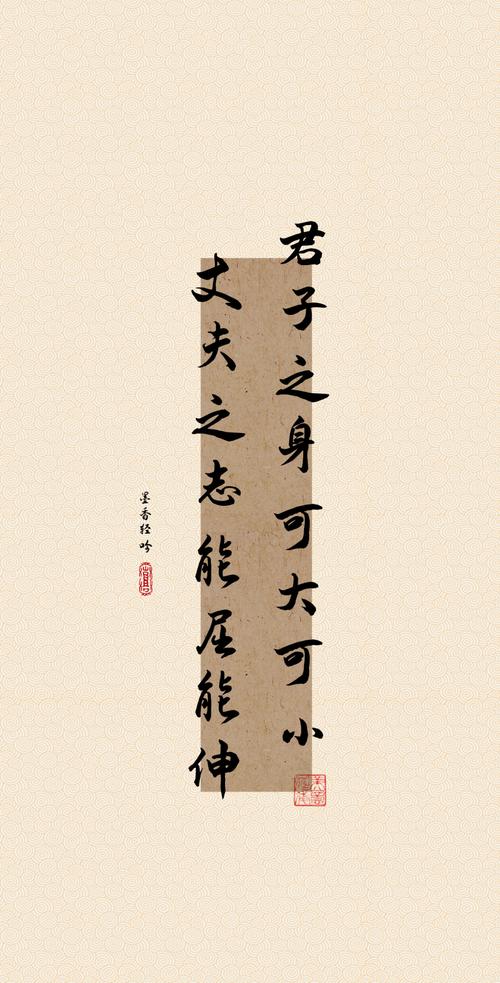 君子之身可大可小
丈夫之志能屈能伸
墨香轻吟